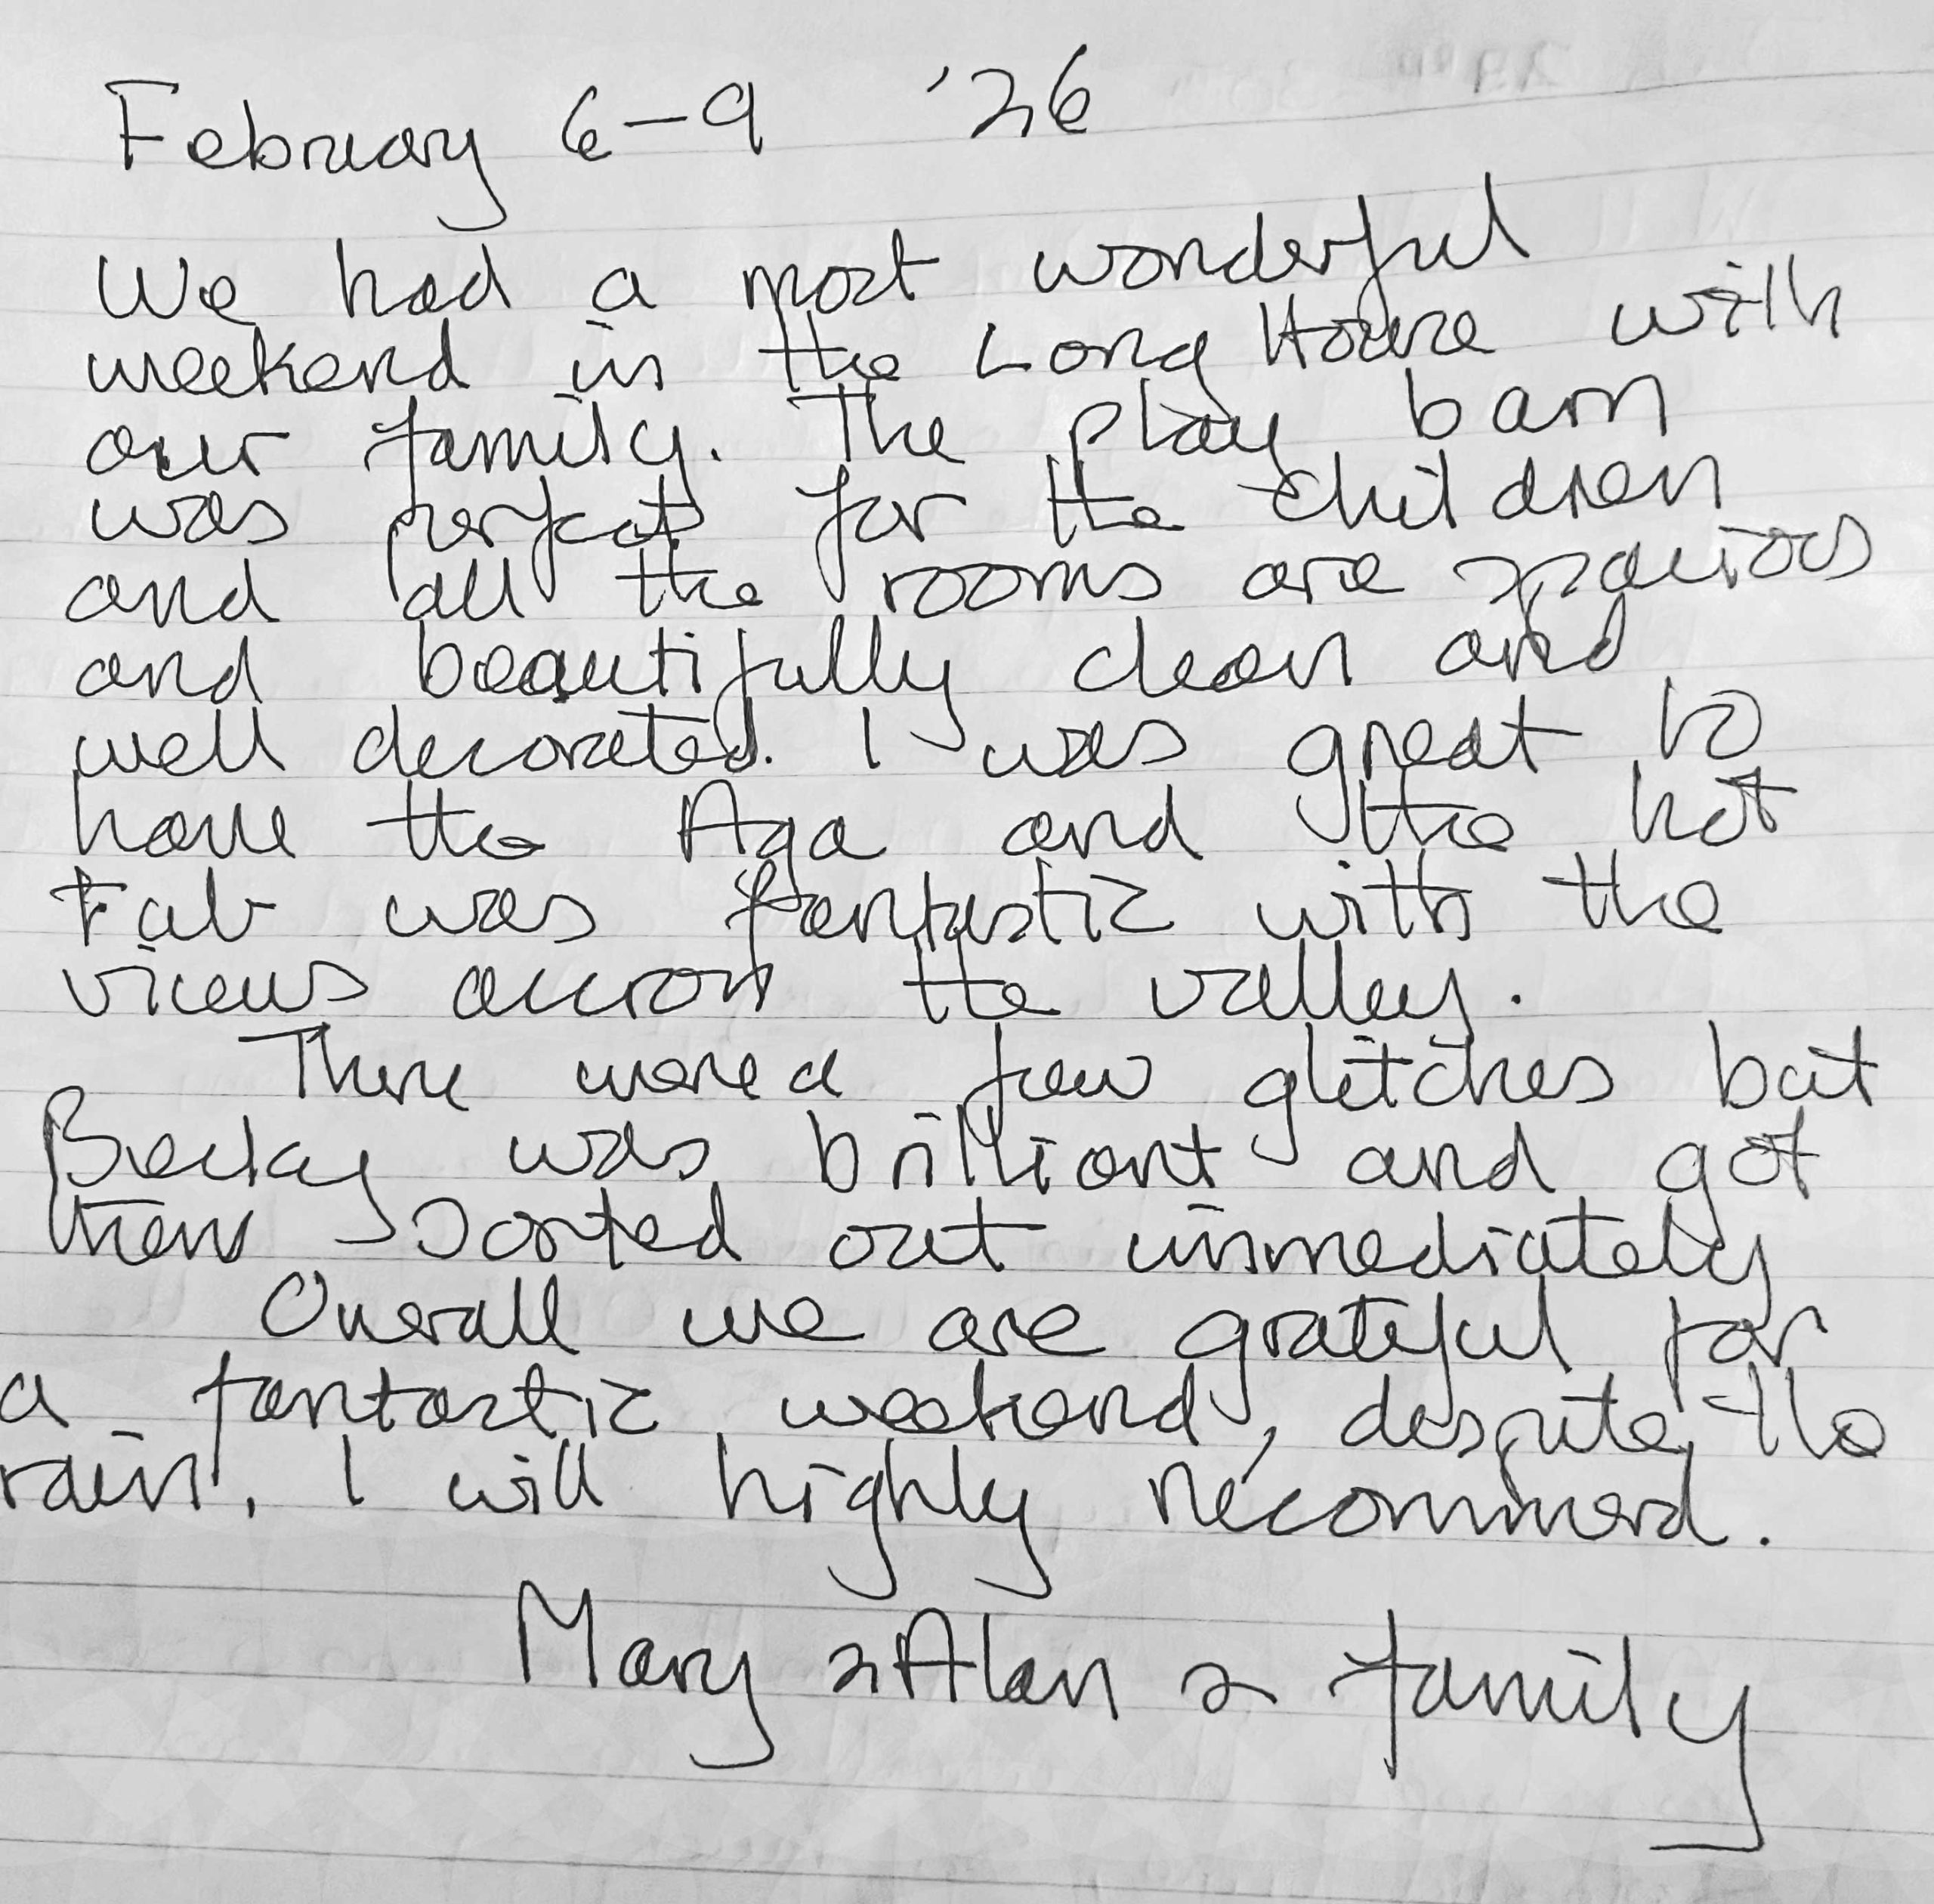 February 6-9 '26
We had a most wonderful
weekend in the Long House with
our family. The play barn
was perfect for the children
and all the rooms are spacious
and beautifully clean and
well decorated. I was great to
have the Aga and the hot
tub was fantastic with the
views accross the valley.
There were a few glitches but
Becky was brilliant and got
them sorted out immediately
Overall we are grateful for
a fantastic weekend, despite the
rain. I will highly recommend.
Mary & Alan & family